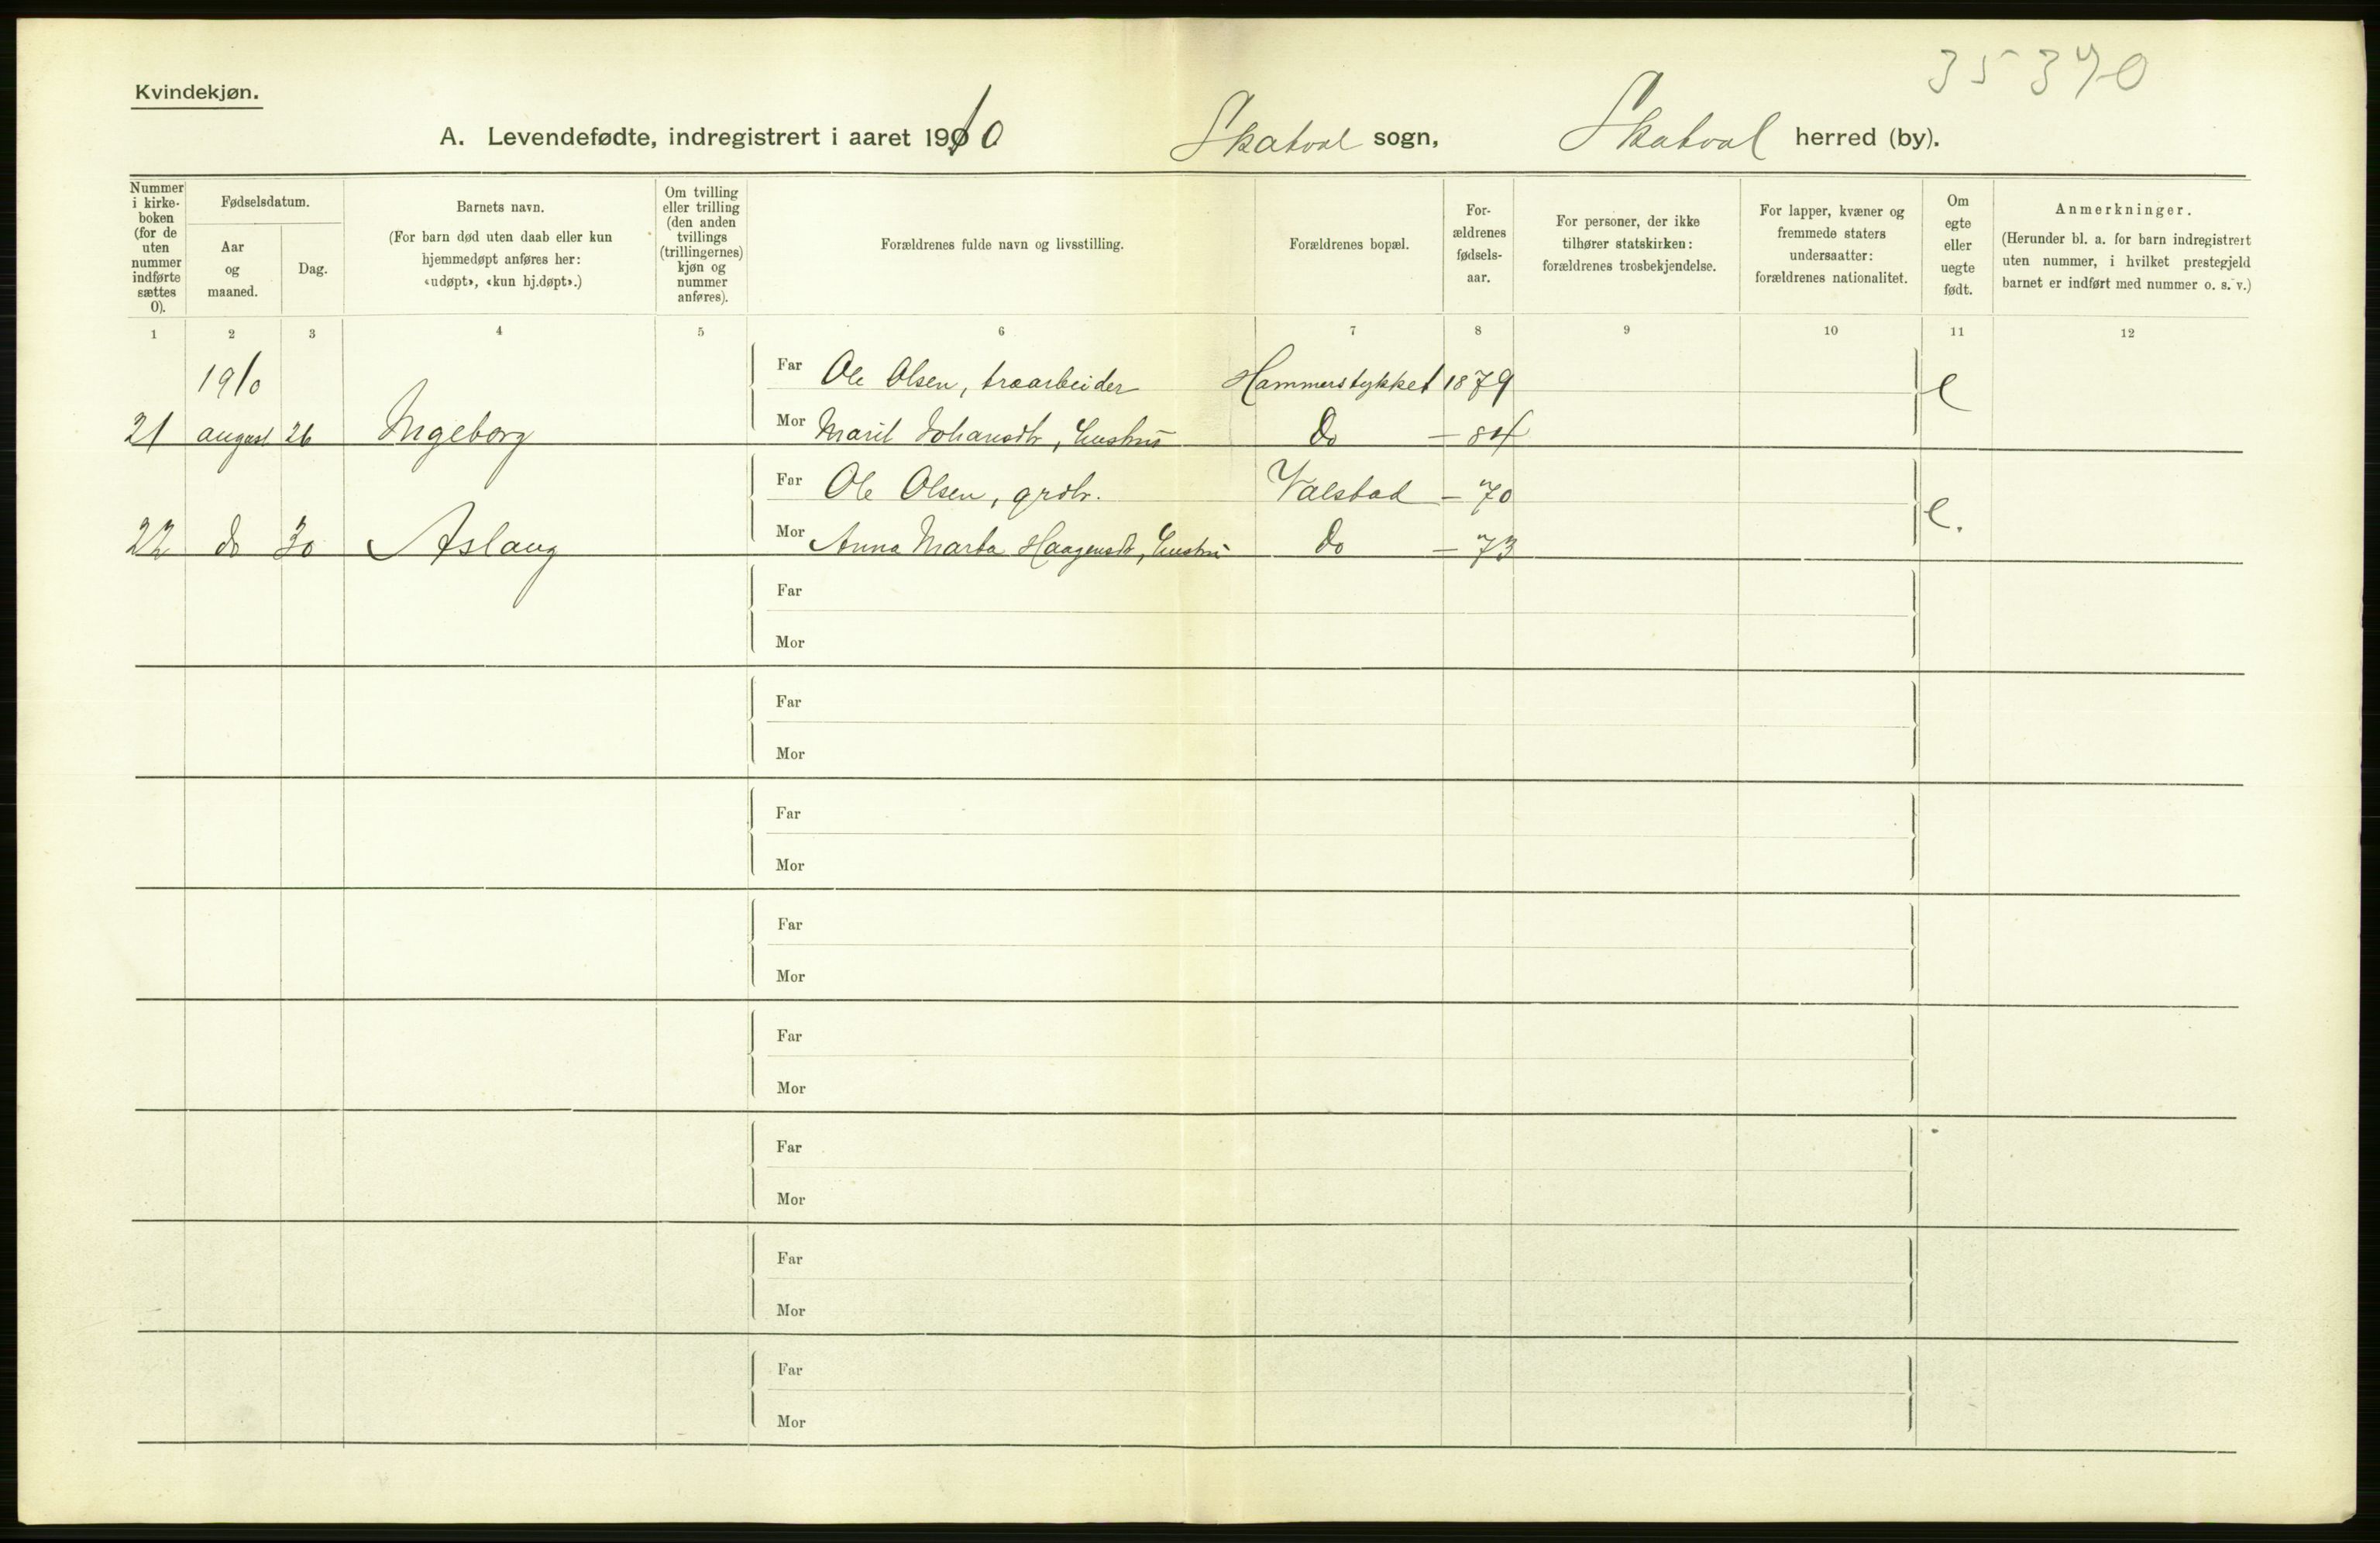 35370
Kvindekjøn.
A. Levendefødte, indregistrert i aaret 1910 Skatval sogn, Skatval herred (by).
Nummer i kirke-boken (for de uten nummer indførte sættes 0).
Fødselsdatum.
Aar og maaned.
Dag.
Barnets navn.
(For barn død uten daab eller kun hjemmedøpt anføres her: «udøpt», «kun hj.døpt».)
Om tvilling eller trilling (den anden tvillings (trillingernes) kjøn og nummer anføres).
Forældrenes fulde navn og livsstilling.
Forældrenes bopæl.
For-ældrenes fødsels-aar.
For personer, der ikke tilhører statskirken: forældrenes trosbekjendelse.
For lapper, kvæner og fremmede staters undersaatter: forældrenes nationalitet.
Om egte eller uegte født.
Anmerkninger.
(Herunder bl. a. for barn indregistrert uten nummer, i hvilket prestegjeld barnet er indført med nummer o. s. v.)
1 2 3 4 5 6 7 8 9 10 11 12
1910 Far Ole Olsen, træarbeider Hammerstykket 1879 e
21 august 26 Ingeborg Mor Marit Johansdtr, hustru Do — 84
Far Ole Olsen, grdbr. Valstad — 70 e.
22 do 30 Aslaug Mor Anna Marta Haagensdtr, hustru Do — 73
Far
Mor
Far
Mor
Far
Mor
Far
Mor
Far
Mor
Far
Mor
Far
Mor
Far
Mor